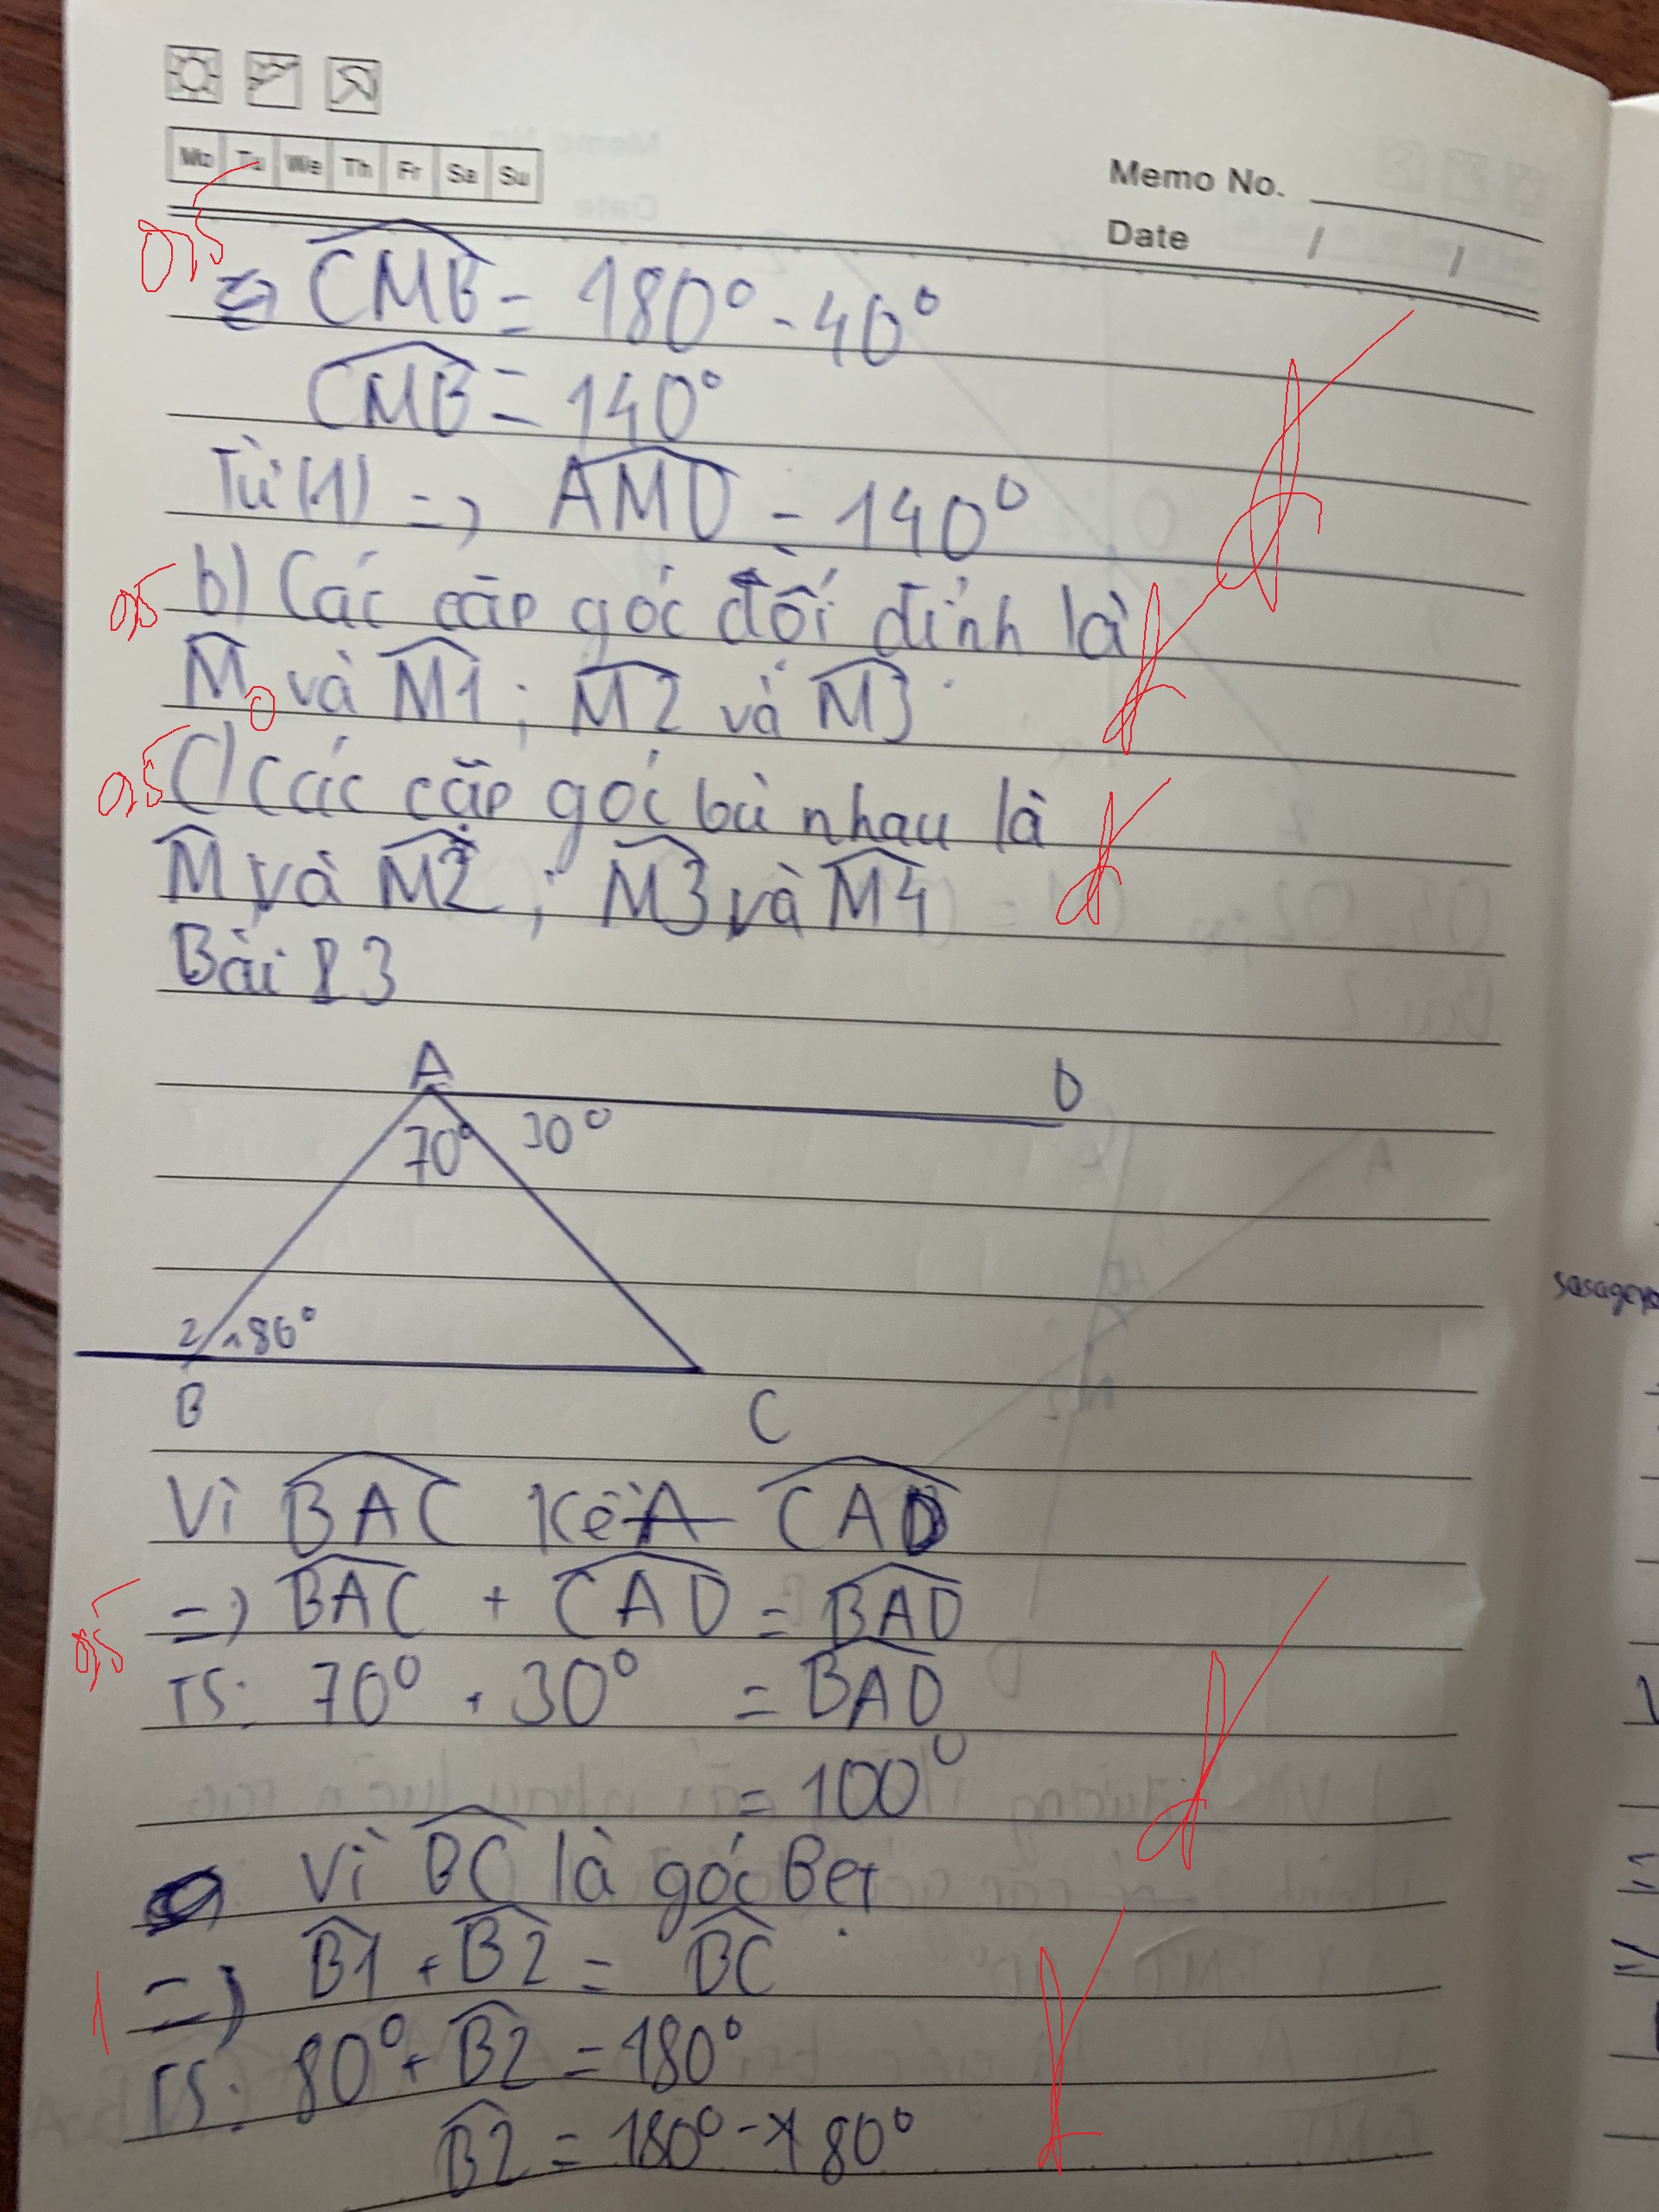 Mo Tu We Th Fr Sa Su
Memo No.
Date / /
0,5
=> CMB = 180° - 40°
CMB = 140°
Từ (1) => AMD = 140°
0,5 b) Các cặp góc đối đỉnh là
M0 và M1 ; M2 và M3
0,5 c) các cặp góc bù nhau là
M1 và M2 ; M3 và M4
Bài 3
A D
70° 30°
2 1 80°
B C
sasageyo
Vì BAC kề CAD
=> BAC + CAD = BAD
0,5
TS: 70° + 30° = BAD
= 100°
Vì BC là góc Bẹt
=> B1 + B2 = BC
1
TS: 80° + B2 = 180°
B2 = 180° - 80°